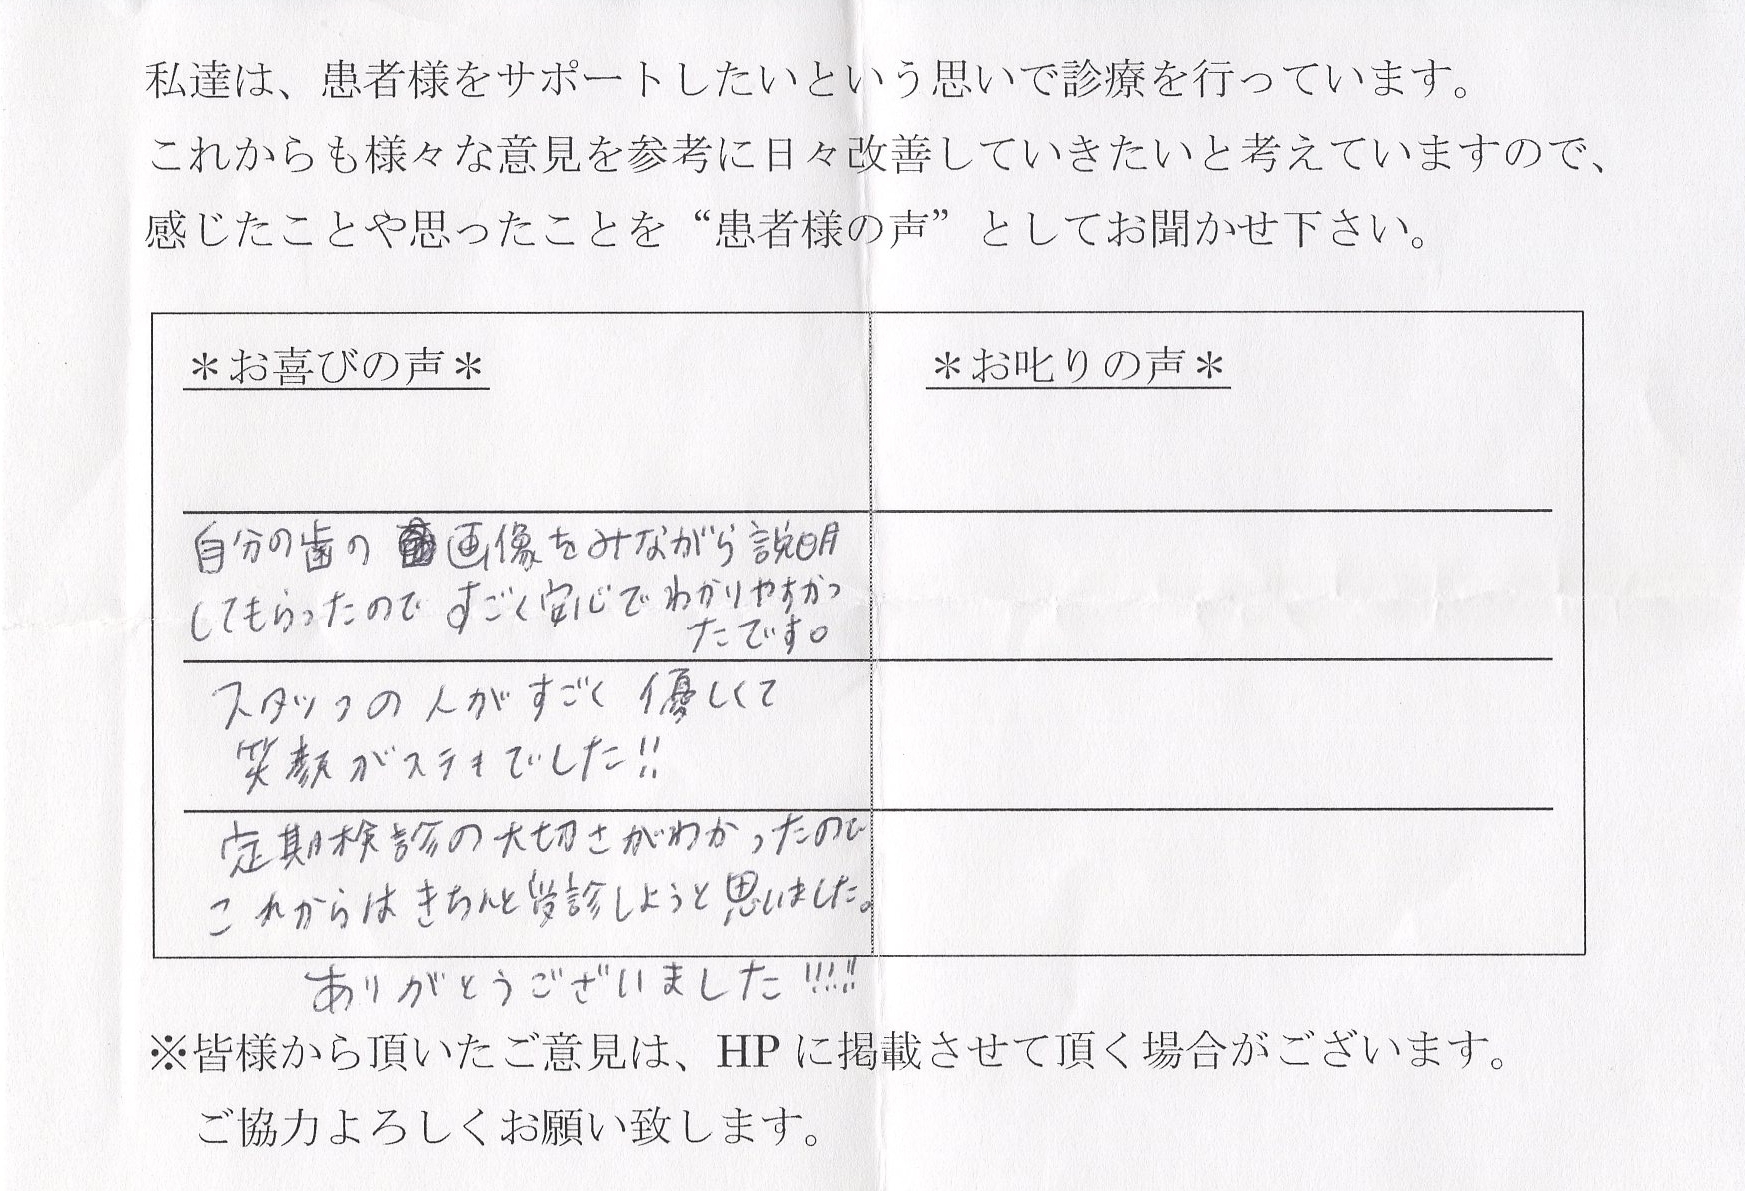 私達は、患者様をサポートしたいという思いで診療を行っています。
これからも様々な意見を参考に日々改善していきたいと考えていますので、
感じたことや思ったことを“患者様の声”としてお聞かせ下さい。
＊お喜びの声＊
＊お叱りの声＊
自分の歯の画像をみながら説明
してもらったのですごく安心でわかりやすかっ
たです。
スタッフの人がすごく優しくて
笑顔がステキでした!!
定期検診の大切さがわかったので
これからはきちんと受診しようと思いました。
ありがとうございました!!!!
※皆様から頂いたご意見は、HPに掲載させて頂く場合がございます。
ご協力よろしくお願い致します。